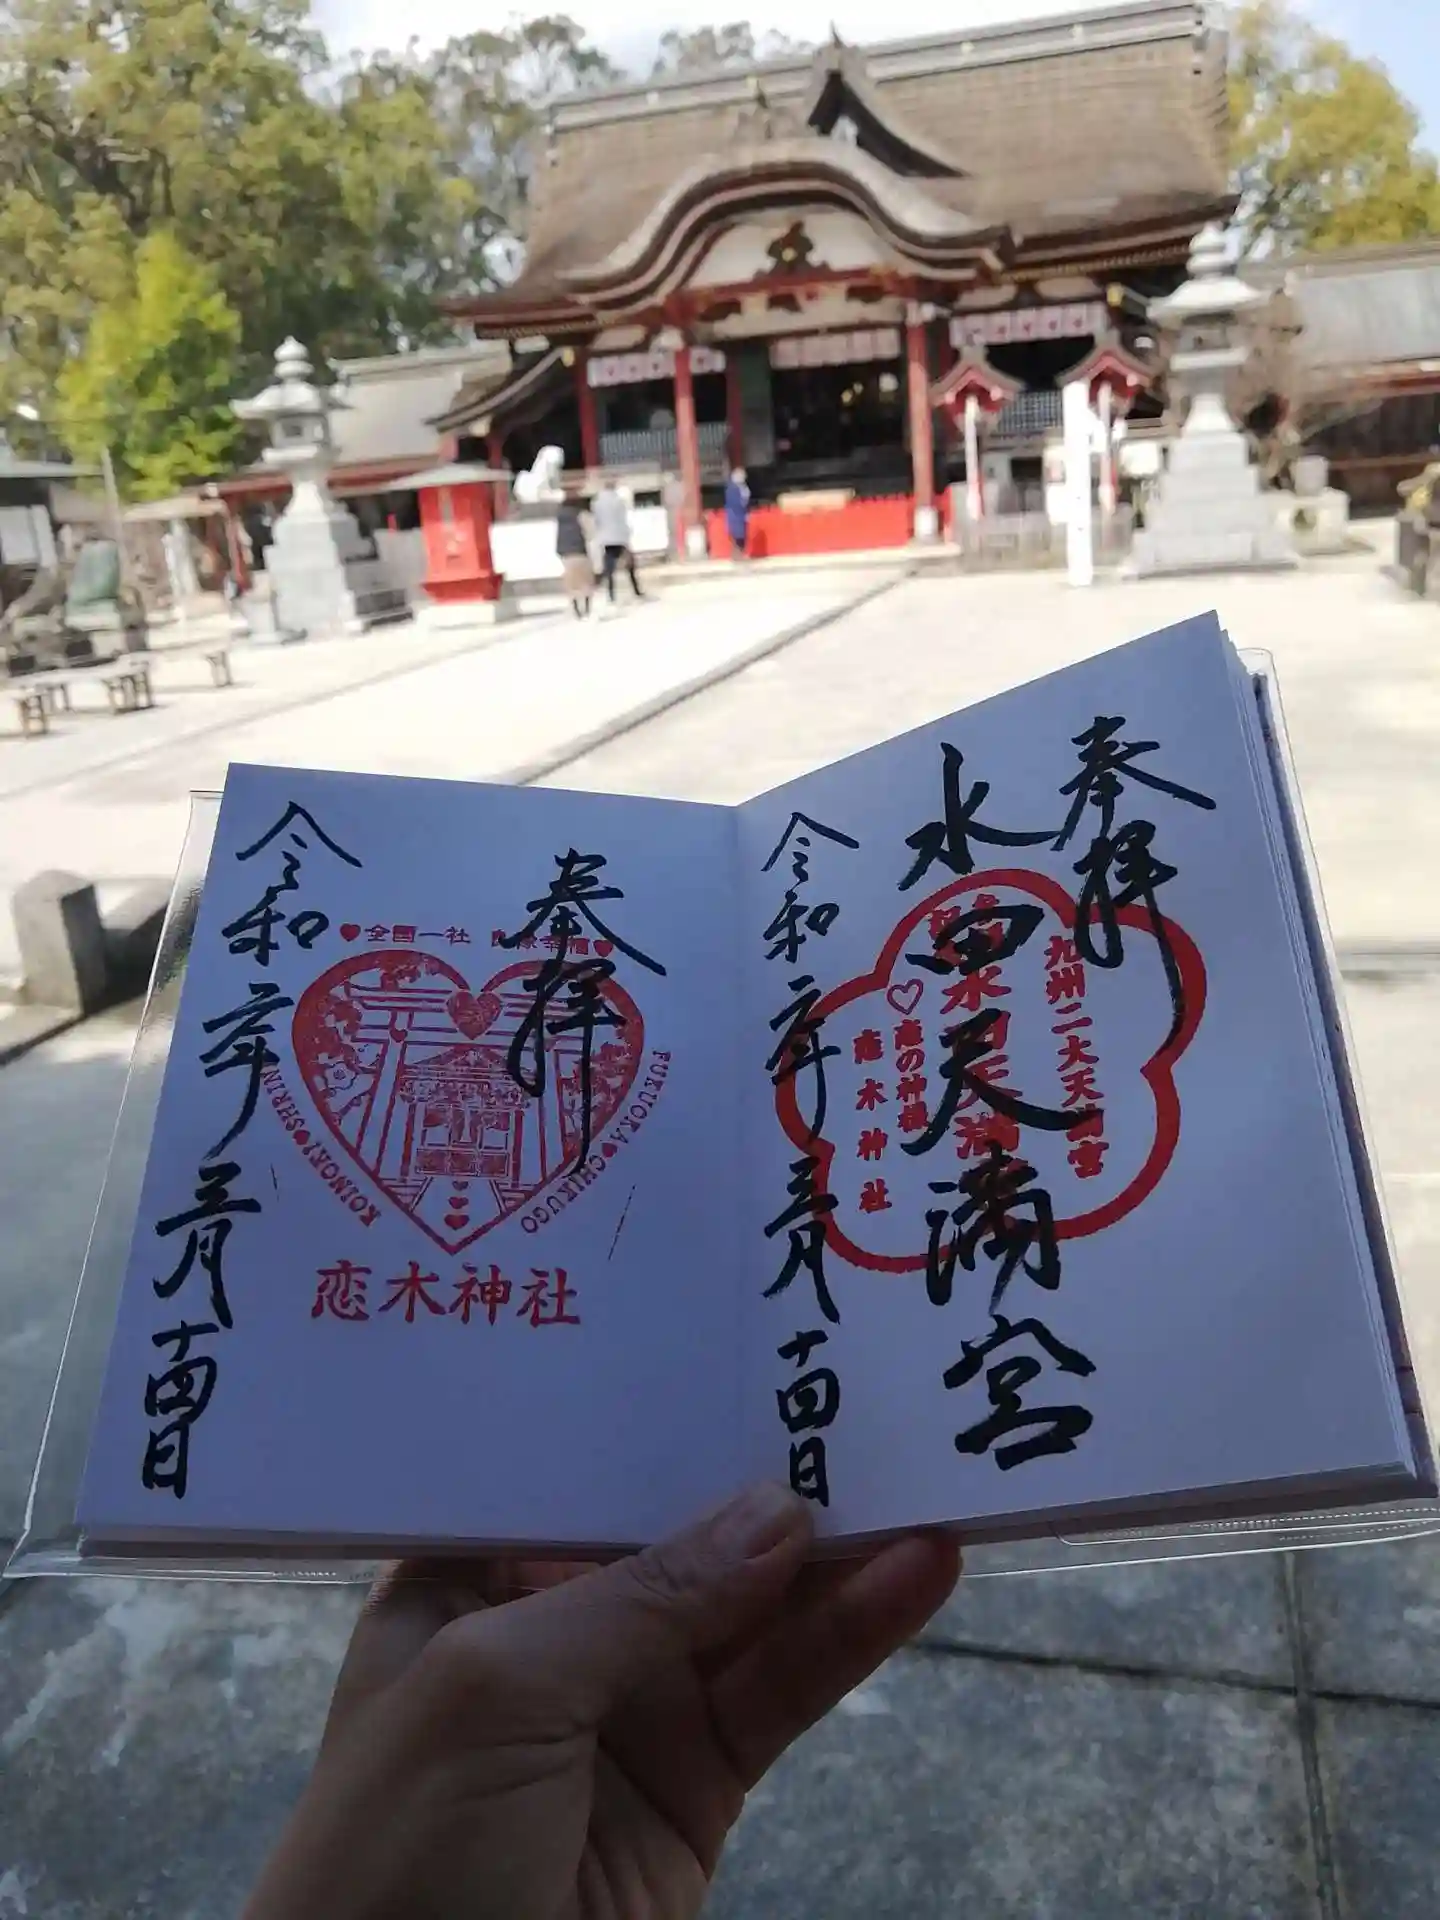 奉拝
水田天満宮
九州二大天満宮
恋の神様
恋木神社
令和二年三月十四日
奉拝
全国一社
KOINOKI SHRINE
FUKUOKA CHIKUGO
恋木神社
令和二年三月十四日